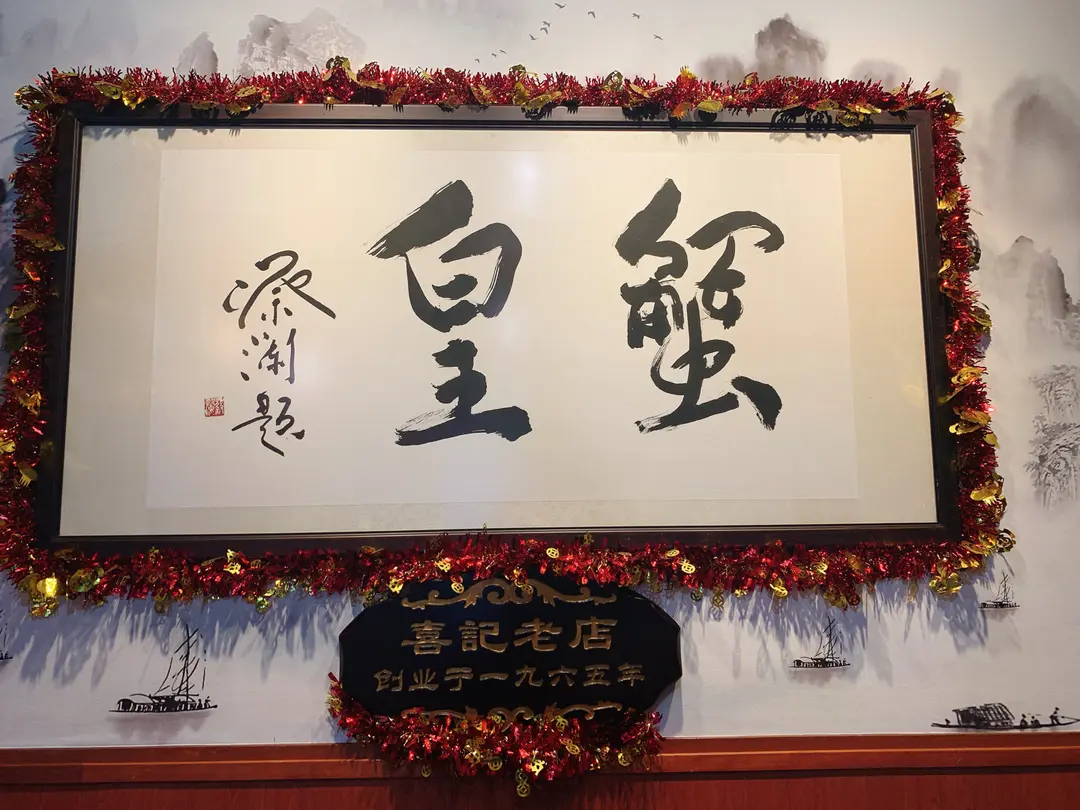 蟹皇
蔡瀾题
喜記老店
創业于一九六五年